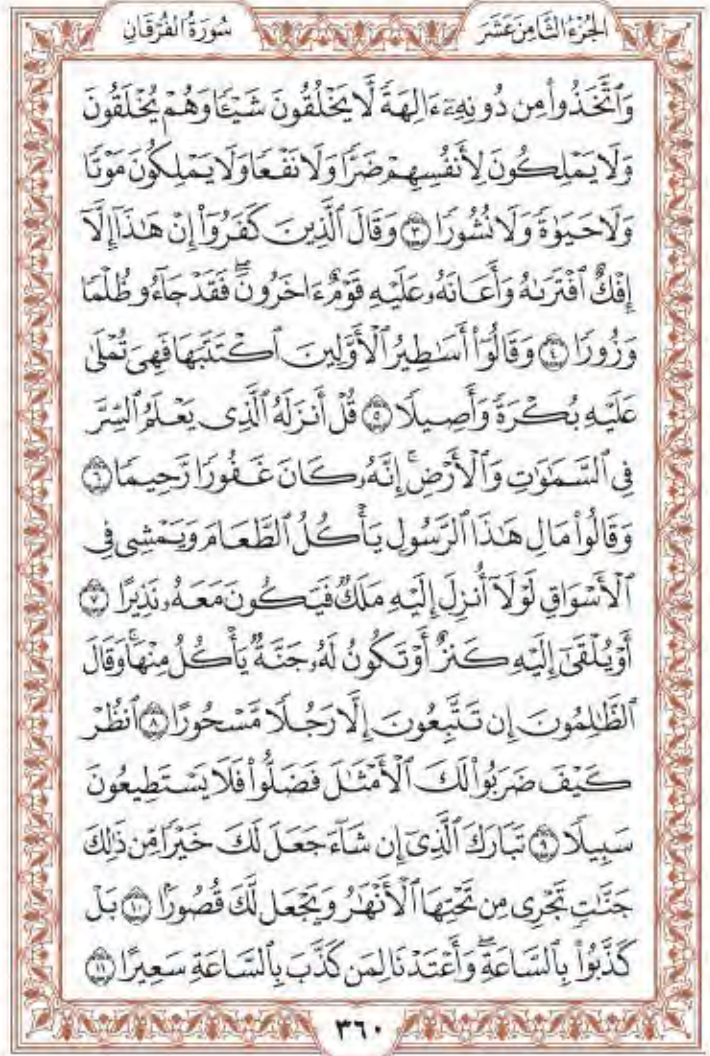 الجُزْءُ الثَّامِنَ عَشَرَ
سُورَةُ الفُرْقَانِ
وَٱتَّخَذُواْ مِن دُونِهِۦٓ ءَالِهَةٗ لَّا يَخۡلُقُونَ شَيۡـٔٗا وَهُمۡ يُخۡلَقُونَ
وَلَا يَمۡلِكُونَ لِأَنفُسِهِمۡ ضَرّٗا وَلَا نَفۡعٗا وَلَا يَمۡلِكُونَ مَوۡتٗا
وَلَا حَيَوٰةٗ وَلَا نُشُورٗا ٣ وَقَالَ ٱلَّذِينَ كَفَرُوٓاْ إِنۡ هَٰذَآ إِلَّآ
إِفۡكٌ ٱفۡتَرَىٰهُ وَأَعَانَهُۥ عَلَيۡهِ قَوۡمٌ ءَاخَرُونَۖ فَقَدۡ جَآءُو ظُلۡمٗا
وَزُورٗا ٤ وَقَالُوٓاْ أَسَٰطِيرُ ٱلۡأَوَّلِينَ ٱكۡتَتَبَهَا فَهِيَ تُمۡلَىٰ
عَلَيۡهِ بُكۡرَةٗ وَأَصِيلٗا ٥ قُلۡ أَنزَلَهُ ٱلَّذِي يَعۡلَمُ ٱلسِّرَّ
فِي ٱلسَّمَٰوَٰتِ وَٱلۡأَرۡضِۚ إِنَّهُۥ كَانَ غَفُورٗا رَّحِيمٗا ٦
وَقَالُواْ مَالِ هَٰذَا ٱلرَّسُولِ يَأۡكُلُ ٱلطَّعَامَ وَيَمۡشِي فِي
ٱلۡأَسۡوَاقِ لَوۡلَآ أُنزِلَ إِلَيۡهِ مَلَكٞ فَيَكُونَ مَعَهُۥ نَذِيرًا ٧
أَوۡ يُلۡقَىٰٓ إِلَيۡهِ كَنزٌ أَوۡ تَكُونُ لَهُۥ جَنَّةٞ يَأۡكُلُ مِنۡهَاۚ وَقَالَ
ٱلظَّٰلِمُونَ إِن تَتَّبِعُونَ إِلَّا رَجُلٗا مَّسۡحُورًا ٨ ٱنظُرۡ
كَيۡفَ ضَرَبُواْ لَكَ ٱلۡأَمۡثَٰلَ فَضَلُّواْ فَلَا يَسۡتَطِيعُونَ
سَبِيلٗا ٩ تَبَارَكَ ٱلَّذِيٓ إِن شَآءَ جَعَلَ لَكَ خَيۡرٗا مِّن ذَٰلِكَ
جَنَّٰتٖ تَجۡرِي مِن تَحۡتِهَا ٱلۡأَنۡهَٰرُ وَيَجۡعَل لَّكَ قُصُورَۢا ١٠ بَلۡ
كَذَّبُواْ بِٱلسَّاعَةِۖ وَأَعۡتَدۡنَا لِمَن كَذَّبَ بِٱلسَّاعَةِ سَعِيرًا ١١
٣٦٠